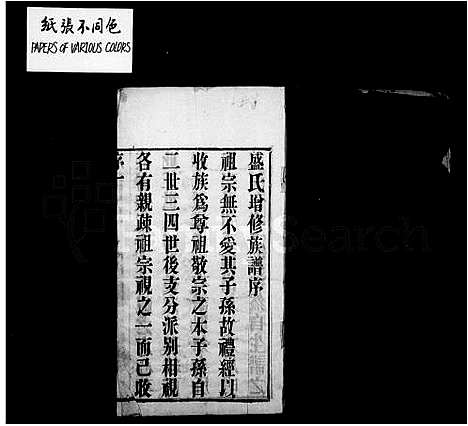 紙張不同色
PAPERS OF VARIOUS COLORS
盛氏增修族譜序
祖宗無不愛其子孫故禮經以
收族爲尊祖敬宗之本子孫自
二世三四世後支分派别相視
各有親疎祖宗視之一而已收
序一